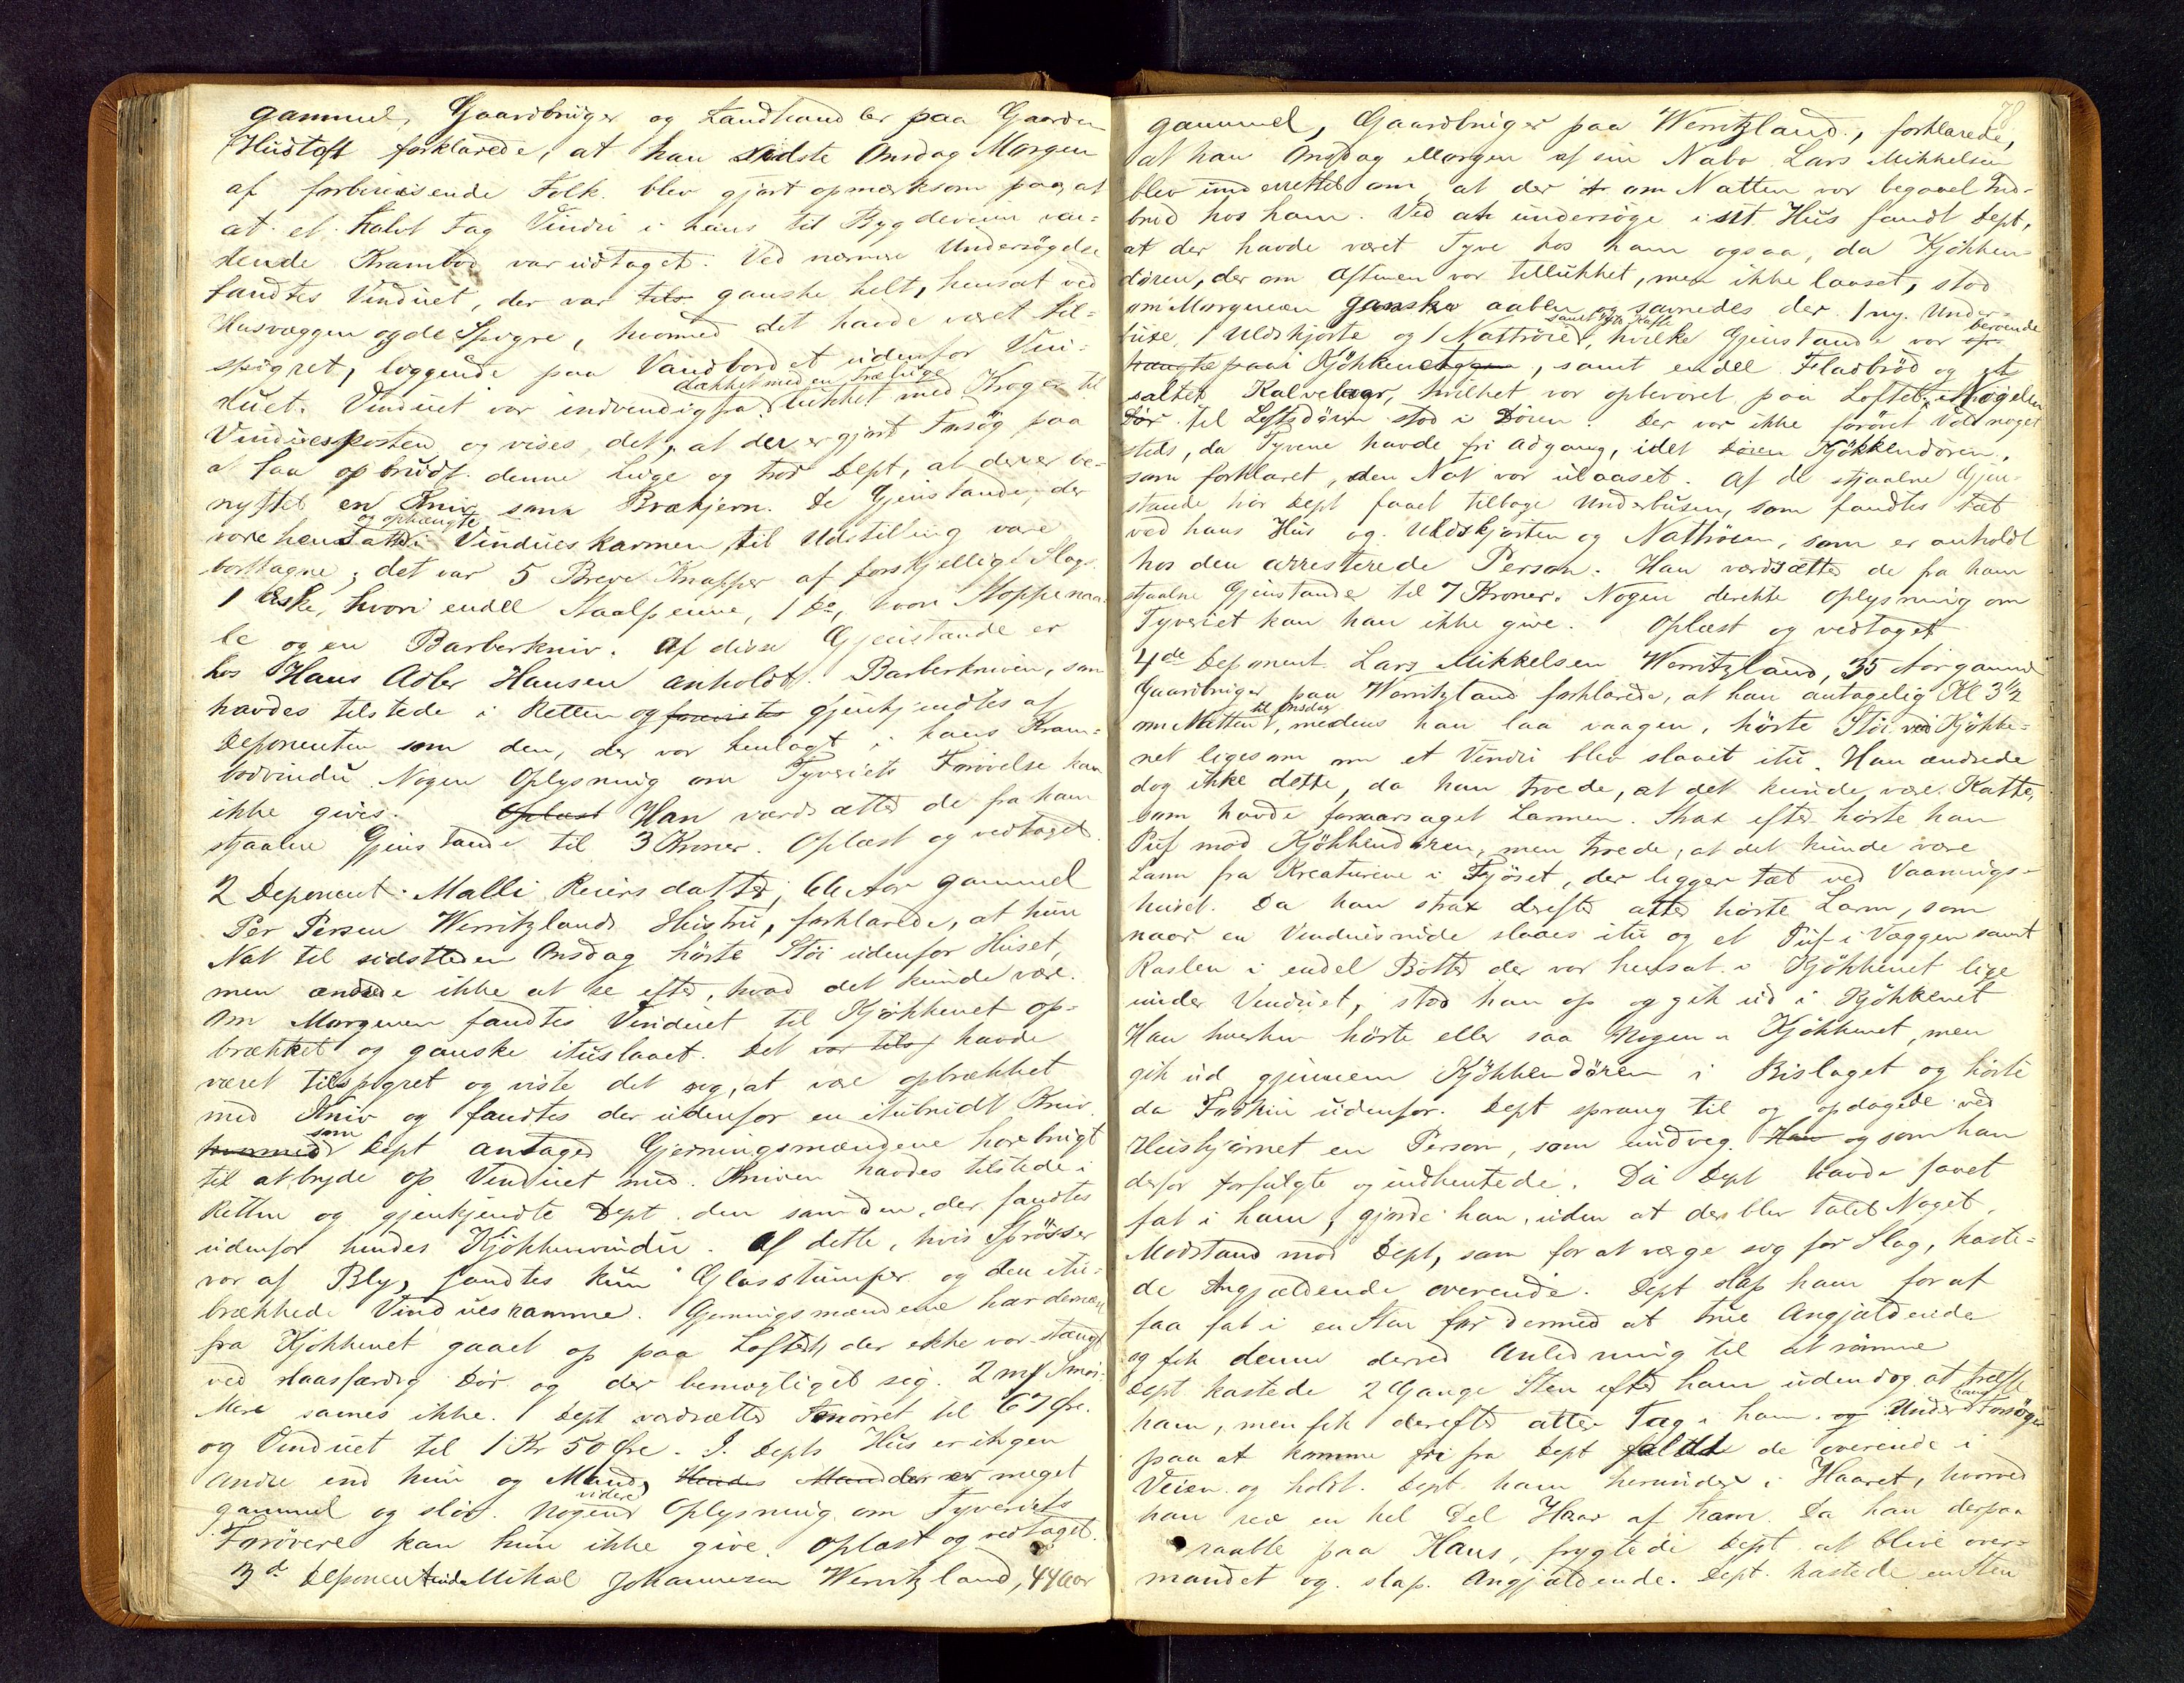 gammel, Gaardbruger og Landhandler paa Gaarden
Hustoft forklarede, at han sidste Onsdag Morgen
af forbireisende Folk blev gjort opmærksom paa, at
at et halvt Fag Vindu i hans til Bygdeveien ven-
dende Krambod var udtaget. Ved nærmere Undersøgelse
fandtes Vinduet, der var tils ganske helt, hensat ved
Husvæggen og de Spigre, hvormed det havde været til-
spigret, liggende paa Vandbordet udenfor Vin-
duet. Vinduet var indvendig fra dækket med en Træluge lukket med Kroge til
Vinduesposten og vises det, at der er gjort Forsøg paa
at faa opbrudt denne Luge og tror Dept, at der er be-
nyttet en Kniv som Brækjern. De Gjenstande, der
vare hensatte og ophængte i Vindueskarmen til Udstilling vare
borttagne; det var 5 Breve Knapper af forskjellige Slags
1 Æske, hvori endel Staalpenne, 1 do, hvori Stoppenaa-
le og en Barberkniv. Af disse Gjenstande er
hos Hans Adler Hansen anholdt Barberkniven, som
havdes tilstede i Retten og foreviste gjenkjendtes af
Deponenten som den, der var henlagt i hans Kram-
bodvindu. Nogen Oplysning om Tyveriets Forøvelse kan
ikke gives. Oplæst Han værdsætter de fra ham
stjaalne Gjenstande til 3 Kroner. Oplæst og vedtaget.
2 Deponent: Malli Reiersdatter, 66 Aar gammel
Per Persen Werritzlands Hustru, forklarede, at hun
Nat til sidstleden Onsdag hørte Støi udenfor Huset,
men ændsede ikke at se efter, hvad det kunde være.
Om Morgenen fandtes Vinduet til Kjøkkenet op-
brækket og ganske ituslaaet. Det var tilsp havde
været tilspigret og viste det sig, at være opbrækket
med Kniv og fandtes der udenfor en itubrudt Kniv
hvormed som Dept antager Gjerningsmændene har brugt
til at bryde op Vinduet med. Kniven havdes tilstede i
Retten og gjenkjendte Dept den som den, der fandtes
udenfor hendes Kjøkkenvindu. Af dette, hvis Sprosser
var af Bly, fandtes kun Glasstumper og den itu-
brækkede Vinduesramme. Gjerningsmændene har dernæst
fra Kjøkkenet gaaet op paa Loftet, der ikke var stængt
ved slaasfærdig Dør og der bemægtiget sig 2 mk Smør.
Mere savnes ikke. Dept værdsætter Smørret til 67 Øre.
og Vinduet til 1 Kr 50 Øre. I Depts Hus er ingen
andre end hun og Mand, Hendes Mand der er meget
gammel og sløv. Nogen videre Oplysning om Tyveriets
Forøvere kan hun ikke give. Oplæst og vedtaget.
3de Deponent Mikal Johannesen Werritzland, 44 Aar
gammel, Gaardbruger paa Werritzland, forklarede,
at han Onsdag Morgen af sin Nabo Lars Mikkelsen
blev underrettet om, at der om Natten var begaaet Ind-
brud hos ham. Ved at undersøge i sit Hus fandt Dept,
at der havde været Tyve hos ham ogsaa, da Kjøkken-
døren, der om Aftenen var tillukket, men ikke laaset, stod
om Morgenen ganske aaben og savnedes der 1 ny Under-
buxe, 1 Uldskjorte og 1 Nattrøie, samt lidt Kaffe hvilke Gjenstande var op beroende
hængte paa i Kjøkkenet, samt endel Fladbrød og et
saltet Kalvelaar, hvilket var opbevaret paa Loftet. Nøgelen
Dør til Loftsdøren stod i Døren. Der var ikke forøvet Vold noget
steds, da Tyvene havde fri Adgang, idet Døren Kjøkkendøren,
som forklaret, den Nat var ulaaset. Af de stjaalne Gjen-
stande har Dept faaet tilbage Underbuxen, som fandtes tæt
ved hans Hus og Uldskjorten og Nattrøien, som er anholdt
hos den arresterede Person. Han værdsætter de fra ham
stjaalne Gjenstande til 7 Kroner. Nogen direkte Oplysning om
Tyveriet kan han ikke give. Oplæst og vedtaget
4de Deponent Lars Mikkelsen Werritzland, 35 Aar gammel
Gaardbruger paa Werritzland forklarede, at han antagelig Kl 3½
om Natten til Onsdag, medens han laa vaagen, hørte Støi ved Kjøkke-
net ligesom om et Vindu blev slaaet itu. Han ændsede
dog ikke dette, da han troede, at det kunde være Katte,
som havde foraarsaget Larmen. Strax efter hørte han
Puf mod Kjøkkendøren, men troede, at det kunde være
Larm fra Kreaturene i Fjøset, der ligger tæt ved Vaanings-
huset. Da han strax derefter atter hørte Larm, som
naar en Vinduesrude slaaes itu og et Puf i Væggen samt
Raslen i endel Bøtter der var hensat i Kjøkkenet lige
under Vinduet, stod han op og gik ud i Kjøkkenet
Han hverken hørte eller saa Nogen i Kjøkkenet, men
gik ud gjennem Kjøkkendøren i Bislaget og hørte
da Fodtrin udenfor. Dept sprang til og opdagede ved
Hushjørnet en Person, som undveg. Han og som han
derfor forfulgte og indhentede. Da Dept havde faaet
fat i ham, gjorde han, uden at der blev talet Noget,
Modstand mod Dept, som for at værge sig for Slag, kaste-
de Angjældende overende. Dept slap ham for at
faa fat i en Stav for dermed at true Angjældende
og fik denne derved Anledning til at rømme
Dept kastede 2 Gange Sten efter ham uden dog at træffe
ham, men fik derefter atter Tag i ham. og Under hans Forsøg
paa at komme fri fra Dept faldt de overende i
Veien og holdt Dept ham herunder i Haaret, hvorved
han rev en hel Del Haar af ham. Da han derpaa
raabte paa Hans, frygtede Dept at blive over-
mandet og slap Angjældende. Dept kastede en Sten